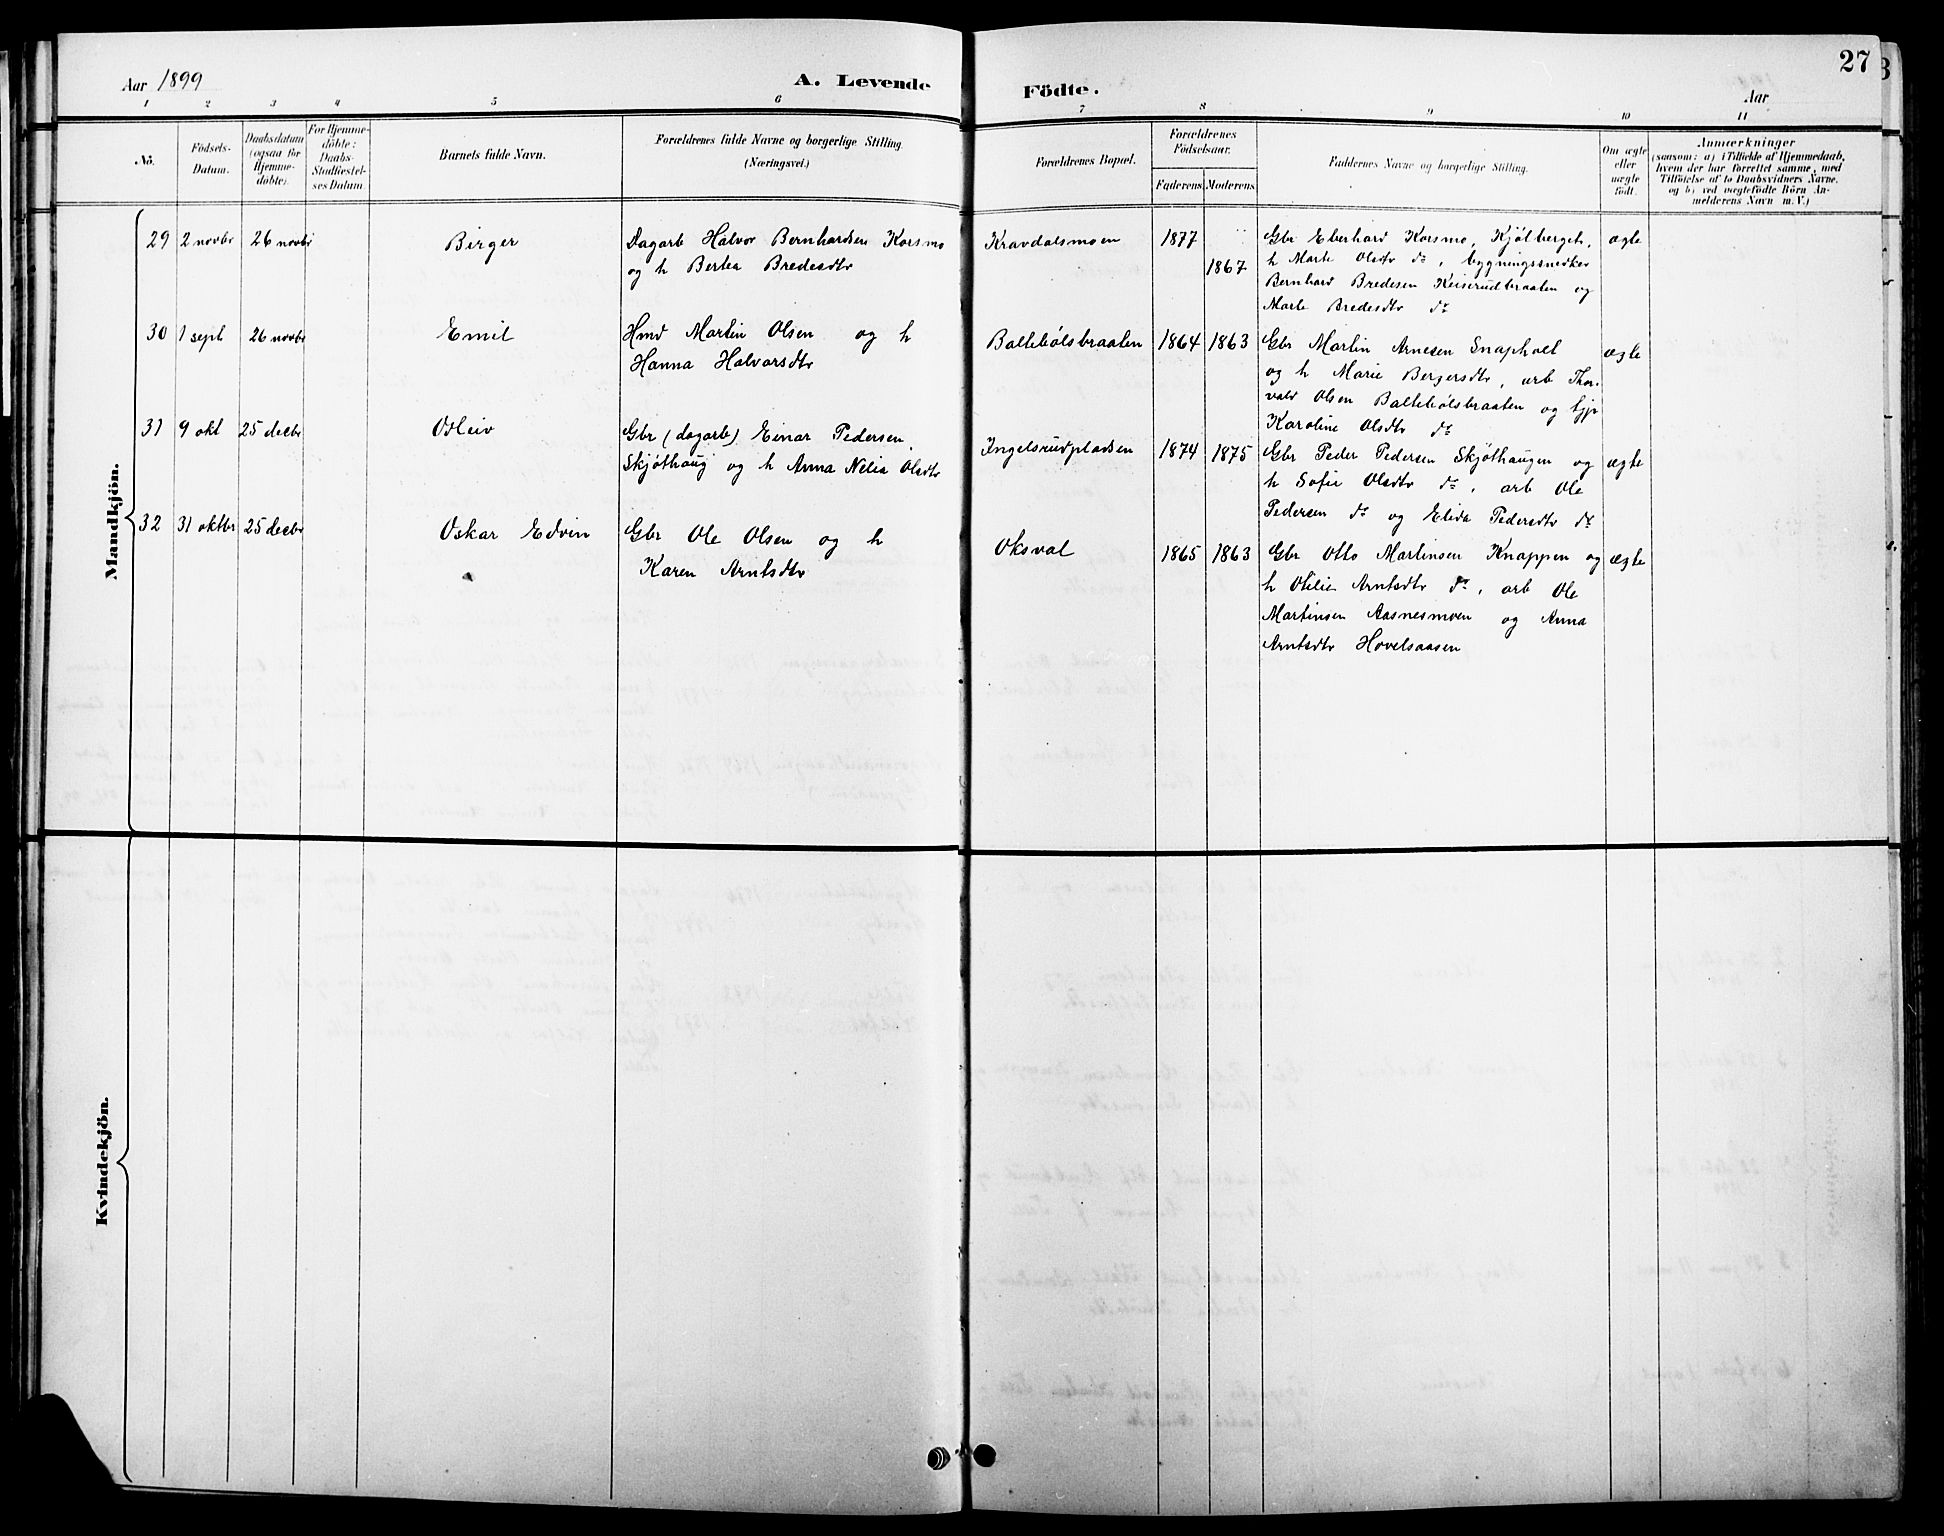 Aar 1899
A. Levende
Födte.
Aar
27
1 2 3 4 5 6 7 8 9 10 11
No.
Födsels-
Datum.
Daabsdatum
(ogsaa for
Hjemme-
döbte).
For Hjemme-
döbte:
Daabs-
Stadfæstel-
ses Datum.
Barnets fulde Navn.
Forældrenes fulde Navne og borgerlige Stilling.
(Næringsvei.)
Forældrenes Bopæl.
Forældrenes
Födselsaar.
Faderens Moderens
Faddernes Navne og borgerlige Stilling.
Om ægte
eller
uægte
født.
Anmærkninger
(saasom: a) i Tilfælde af Hjemmedaab,
hvem der har forrettet samme, med
Tilföielse af to Daabsvidners Navne.
og b) ved uægtefödte Börn An-
melderens Navn m. V.)
Mandkjön.
29 2 novbr 26 novbr Birger
Dagarb Halvor Bernhardsen Korsmo
og h Bertea Bredesdtr
Kravdalsmoen 1877
1867
Gbr Eberhard Korsmo, Kjølberget,
h Marte Olsdtr do, bygningssnedker
Bernhard Bredesen Keiserudbraaten og
Marte Bredesdtr do
ægte
30 1 sept 26 novbr Emil
Hmd Martin Olsen og h
Hanna Halvorsdtr
Baltebølsbraaten 1864 1863
Gbr Martin Arnesen Snapholt
og h Marie Bergersdtr, arb Thor-
vald Olsen Baltebølsbraaten og tjp
Karoline Olsdtr do
ægte
31 9 okt 25 decbr Odleiv
Gbr (dagarb) Einar Pedersen,
Skjøthaug og h Anna Nelia Olsdtr
Ingelsrudpladsen 1874 1875
Gbr Peder Pedersen Skjøthaugen og
h Sofie Olsdtr do, arb Ole
Pedersen do og Elida Pedersdtr do
ægte
32 31 oktbr 25 decbr Oskar Edvin
Gbr Ole Olsen og h
Karen Arntsdtr
Oksval 1865 1863
Gbr Otto Martinsen Knappen og
h Otilie Arntsdtr do, arb Ole
Martinsen Aasnesmoen og Anna
Arntsdtr Hovelsaasen
ægte
Kvindekjön.